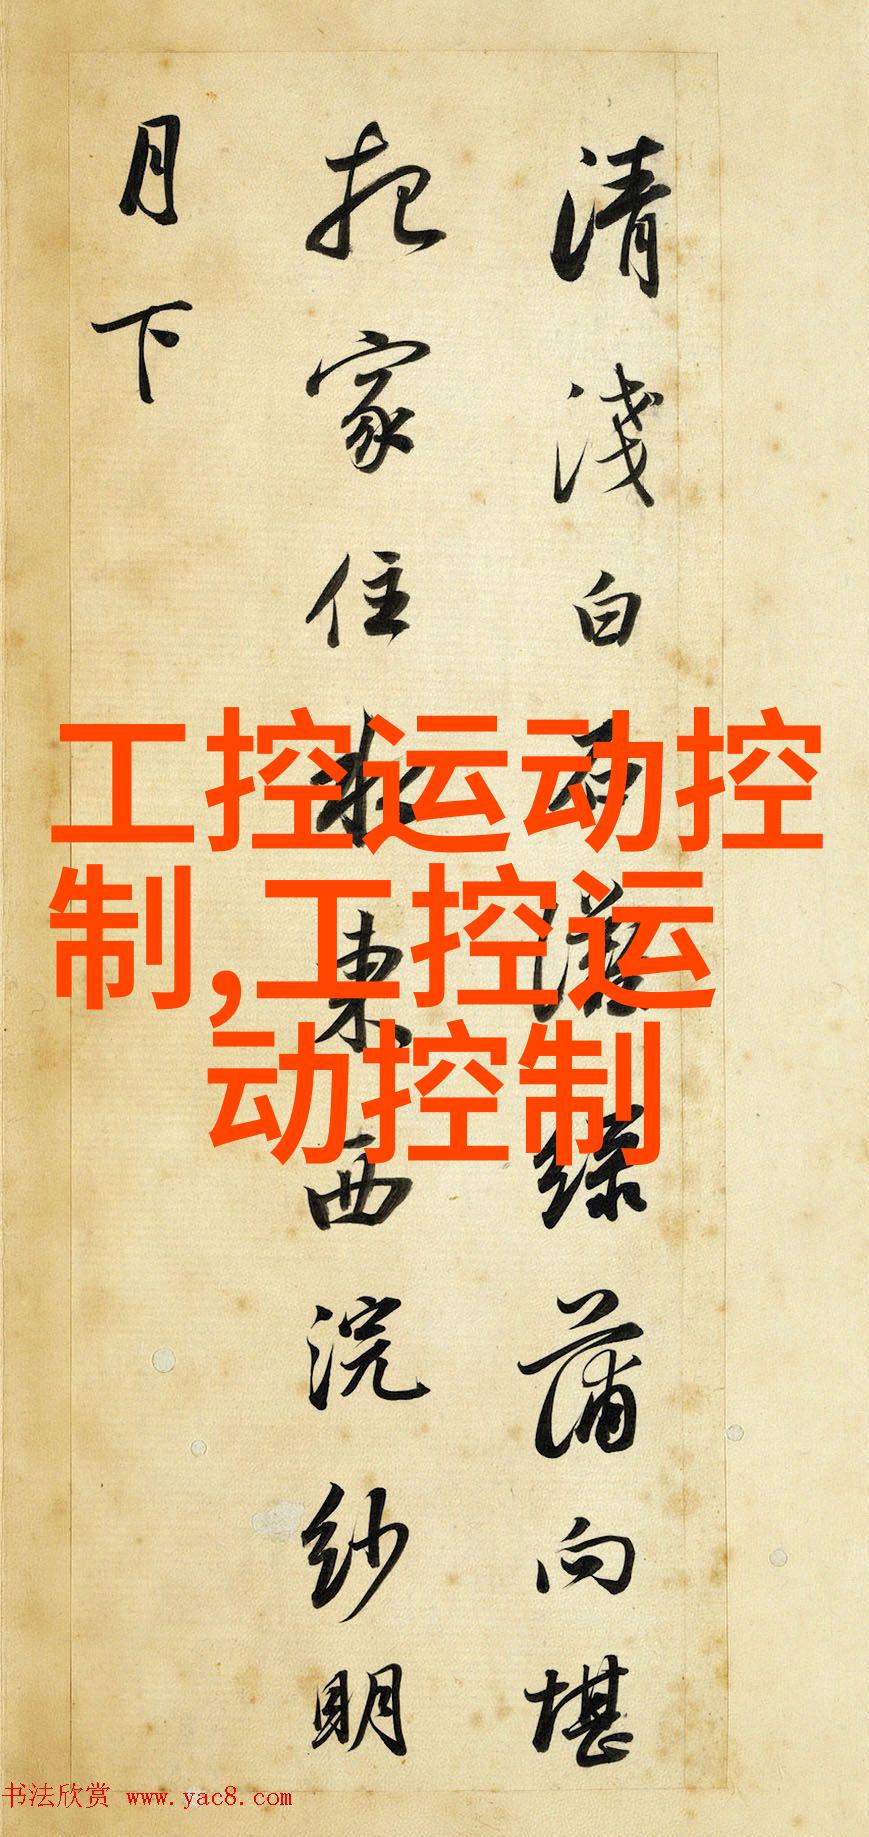 清淺白石灘綠蒲向堪
把家住水東西浣紗明
月下
工控运动控
制,工控运
动控制
书法欣赏 www.yac8.com